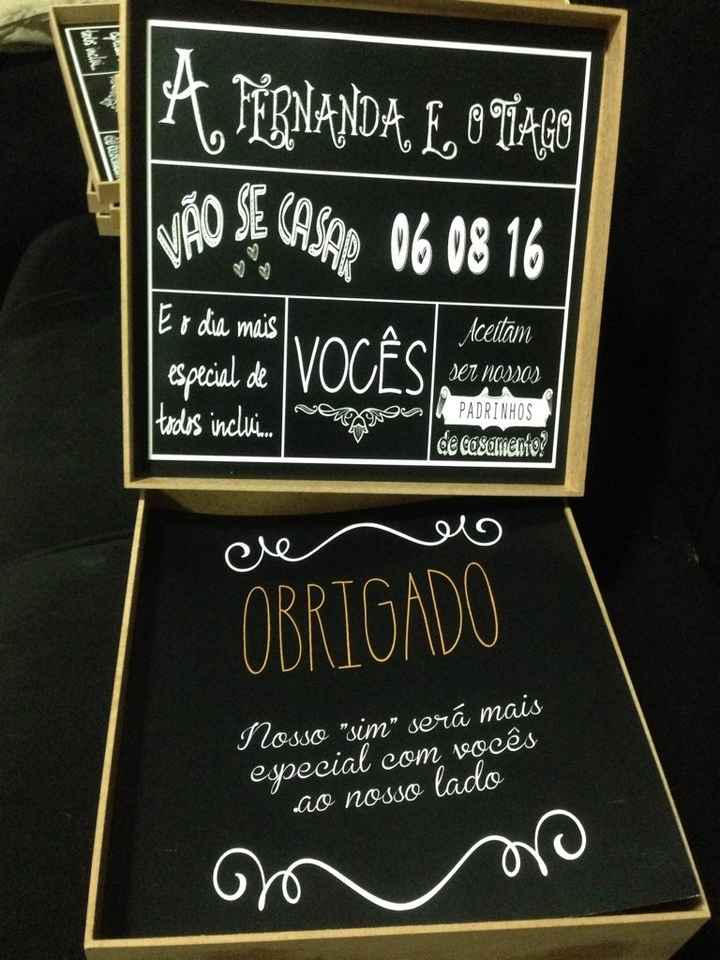 A FERNANDA E O TIAGO
VÃO SE CASAR
06 08 16
E o dia mais
especial de
todos inclui...
VOCÊS
Aceitam
ser nossos
PADRINHOS
de casamento?
OBRIGADO
Nosso "sim" será mais
especial com vocês
.ao nosso lado